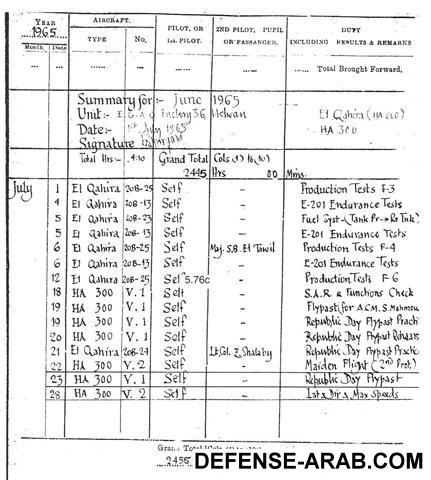 YEAR AIRCRAFT. PILOT, OR 2ND PILOT, PUPIL DUTY
1965 1st. PILOT. OR PASSENGER. INCLUDING RESULTS & REMARKS
Month Date TYPE No.
... ... ... ... ...... ...... Total Brought Forward,
Summary for:- June 1965
Unit:- E.G.A.O Factory 36, Helwan El Qahira (HA 200)
Date:- 1st July 1965 HA 300
Signature
Total Hrs:- 4:10 Grand Total Cols (1) to (10)
2445 Hrs 00 Mins.
July 1 El Qahira 20B-25 Self - Production Tests F-3
4 El Qahira 20B-13 Self - E-201 Endurance Tests
5 El Qahira 20B-23 Self - Fuel Syst-(Tank Pr→Ro Tnk)
5 El Qahira 20B-13 Self - E-201 Endurance Tests
6 El Qahira 20B-25 Self Maj. S.B. El Tawil Production Tests F-4
6 El Qahira 20B-13 Self - E-201 Endurance Tests
12 El Qahira 20B-25 Self 5.76c - Production Tests F-6
18 HA 300 V.1 Self - S.A.R & Functions Check
19 HA 300 V.1 Self - Flypast for A.C.M. S. Mahmou
19 HA 300 V.1 Self - Republic Day Flypast Practi
20 HA 300 V.1 Self - Republic Day Flypast Rehears
21 El Qahira 20B-24 Self Lt.Col. Z. Shalaby Republic Day Flypast Practic
22 HA 300 V.2 Self - Maiden Flight (2nd Prot.)
23 HA 300 V.1 Self - Republic Day Flypast
28 HA 300 V.2 Self - Lat & Dir & Max Speeds
Grand Total
2456
DEFENSE-ARAB.COM